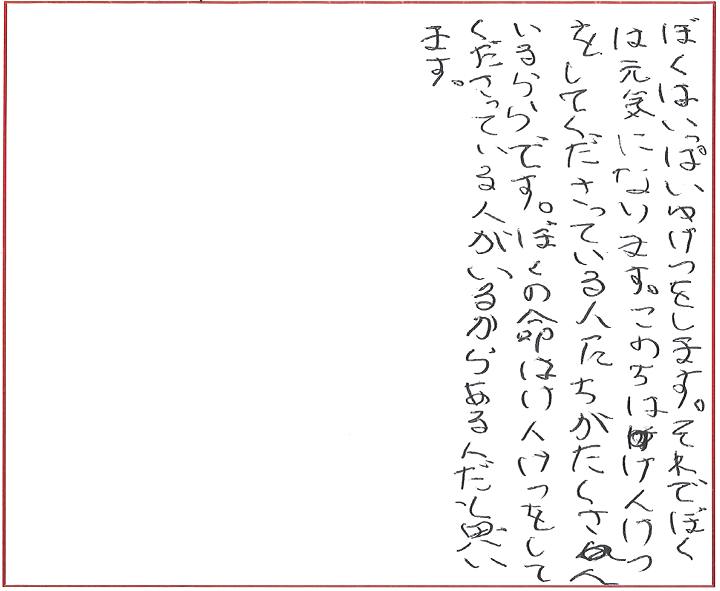 ぼくはいっぱいゆけつをします。それでぼく
は元気になります。このちはけんけつ
をしてくださっている人たちがたくさん
いるからです。ぼくの命はけんけつをして
くださっている人がいるからあるんだと思い
ます。